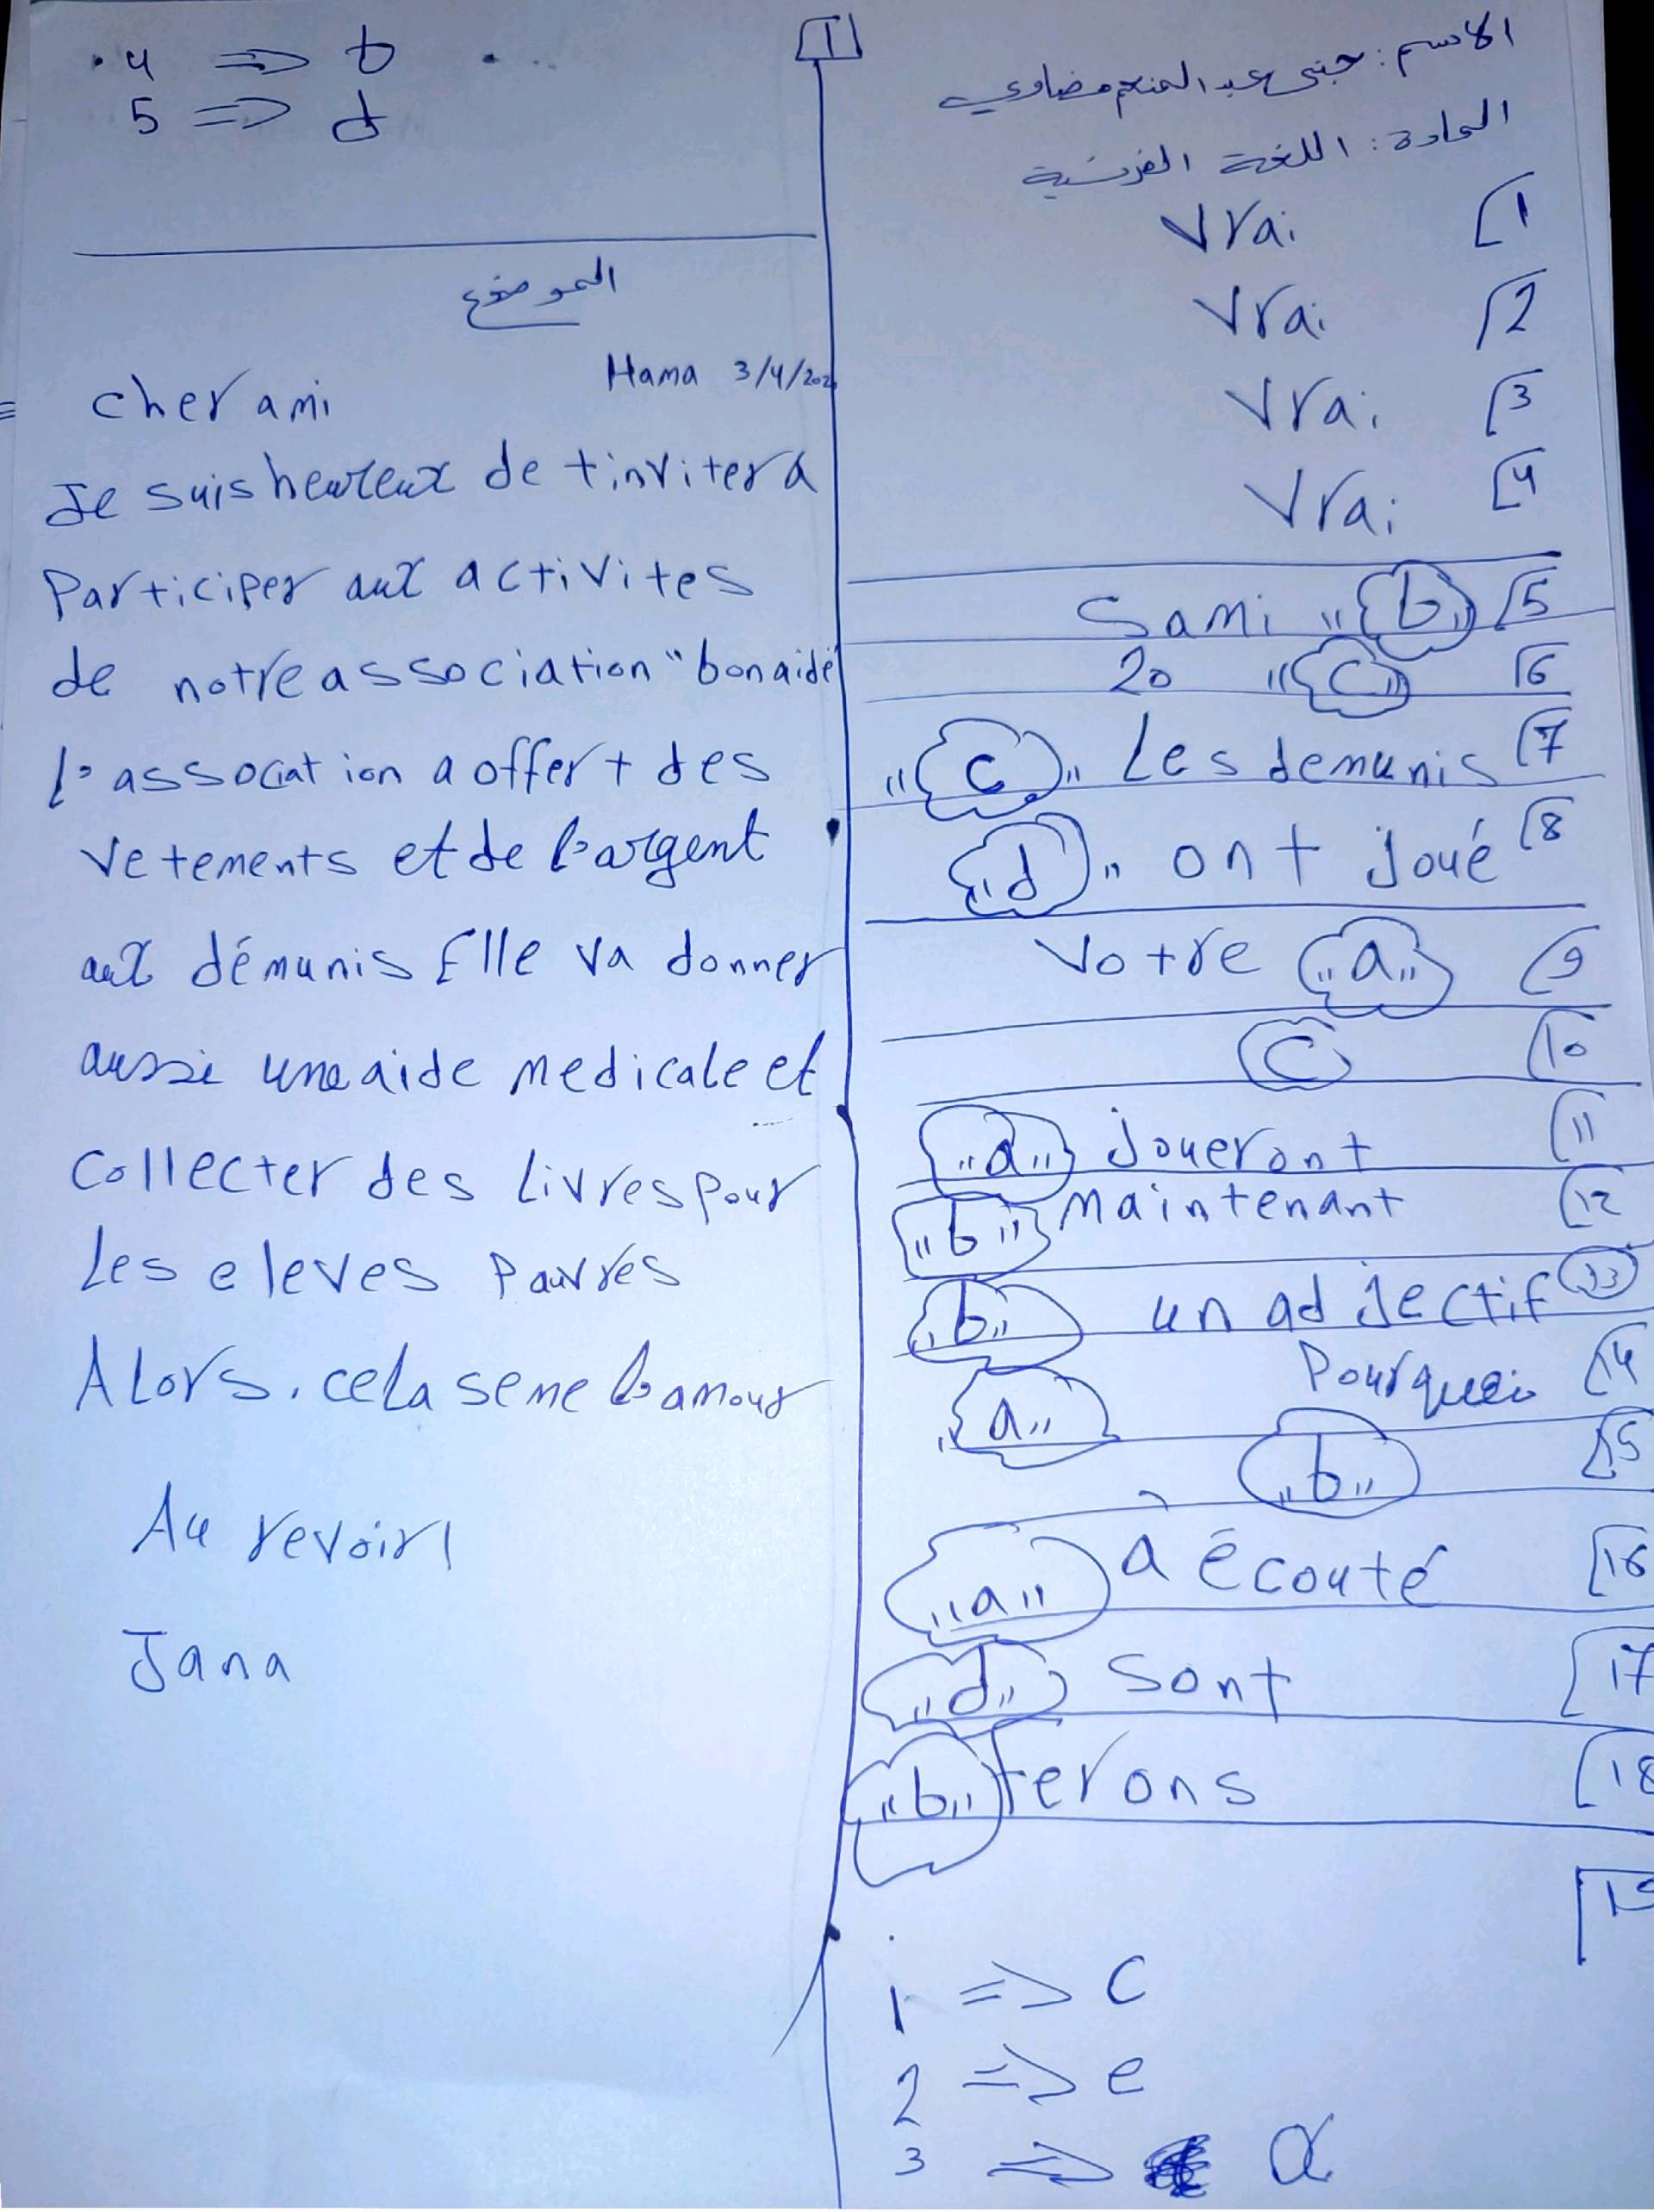 الاسم: جنى عبد المنعم مضاوي
المادة: اللغة الفرنسية
1 Vrai
2 Vrai
3 Vrai
4 Vrai
5 "b" Sami
6 "c" 20
7 Les demunis "c"
8 ont joué "d"
9 "a" Votre
10 C
11 "a" joueront
12 "b" maintenant
13 "b" un adjectif
14 Pourquoi "a"
15 "b"
16 "a" a écouté
17 "d" sont
18 "b" ferons
19
1 => C
2 => e
3 => a
1
4 => b
5 => d
الموضوع
Hama 3/4/202
cher ami
Je suis heureux de tinviter a
Participer aux activites
de notre association "bon aide"
l'association a offert des
vetements et de l'argent
aux démunis Elle va donner
aussi une aide medicale et
collecter des livres pour
Les eleves pauvres
Alors, cela seme l'amour
Au revoir!
Jana